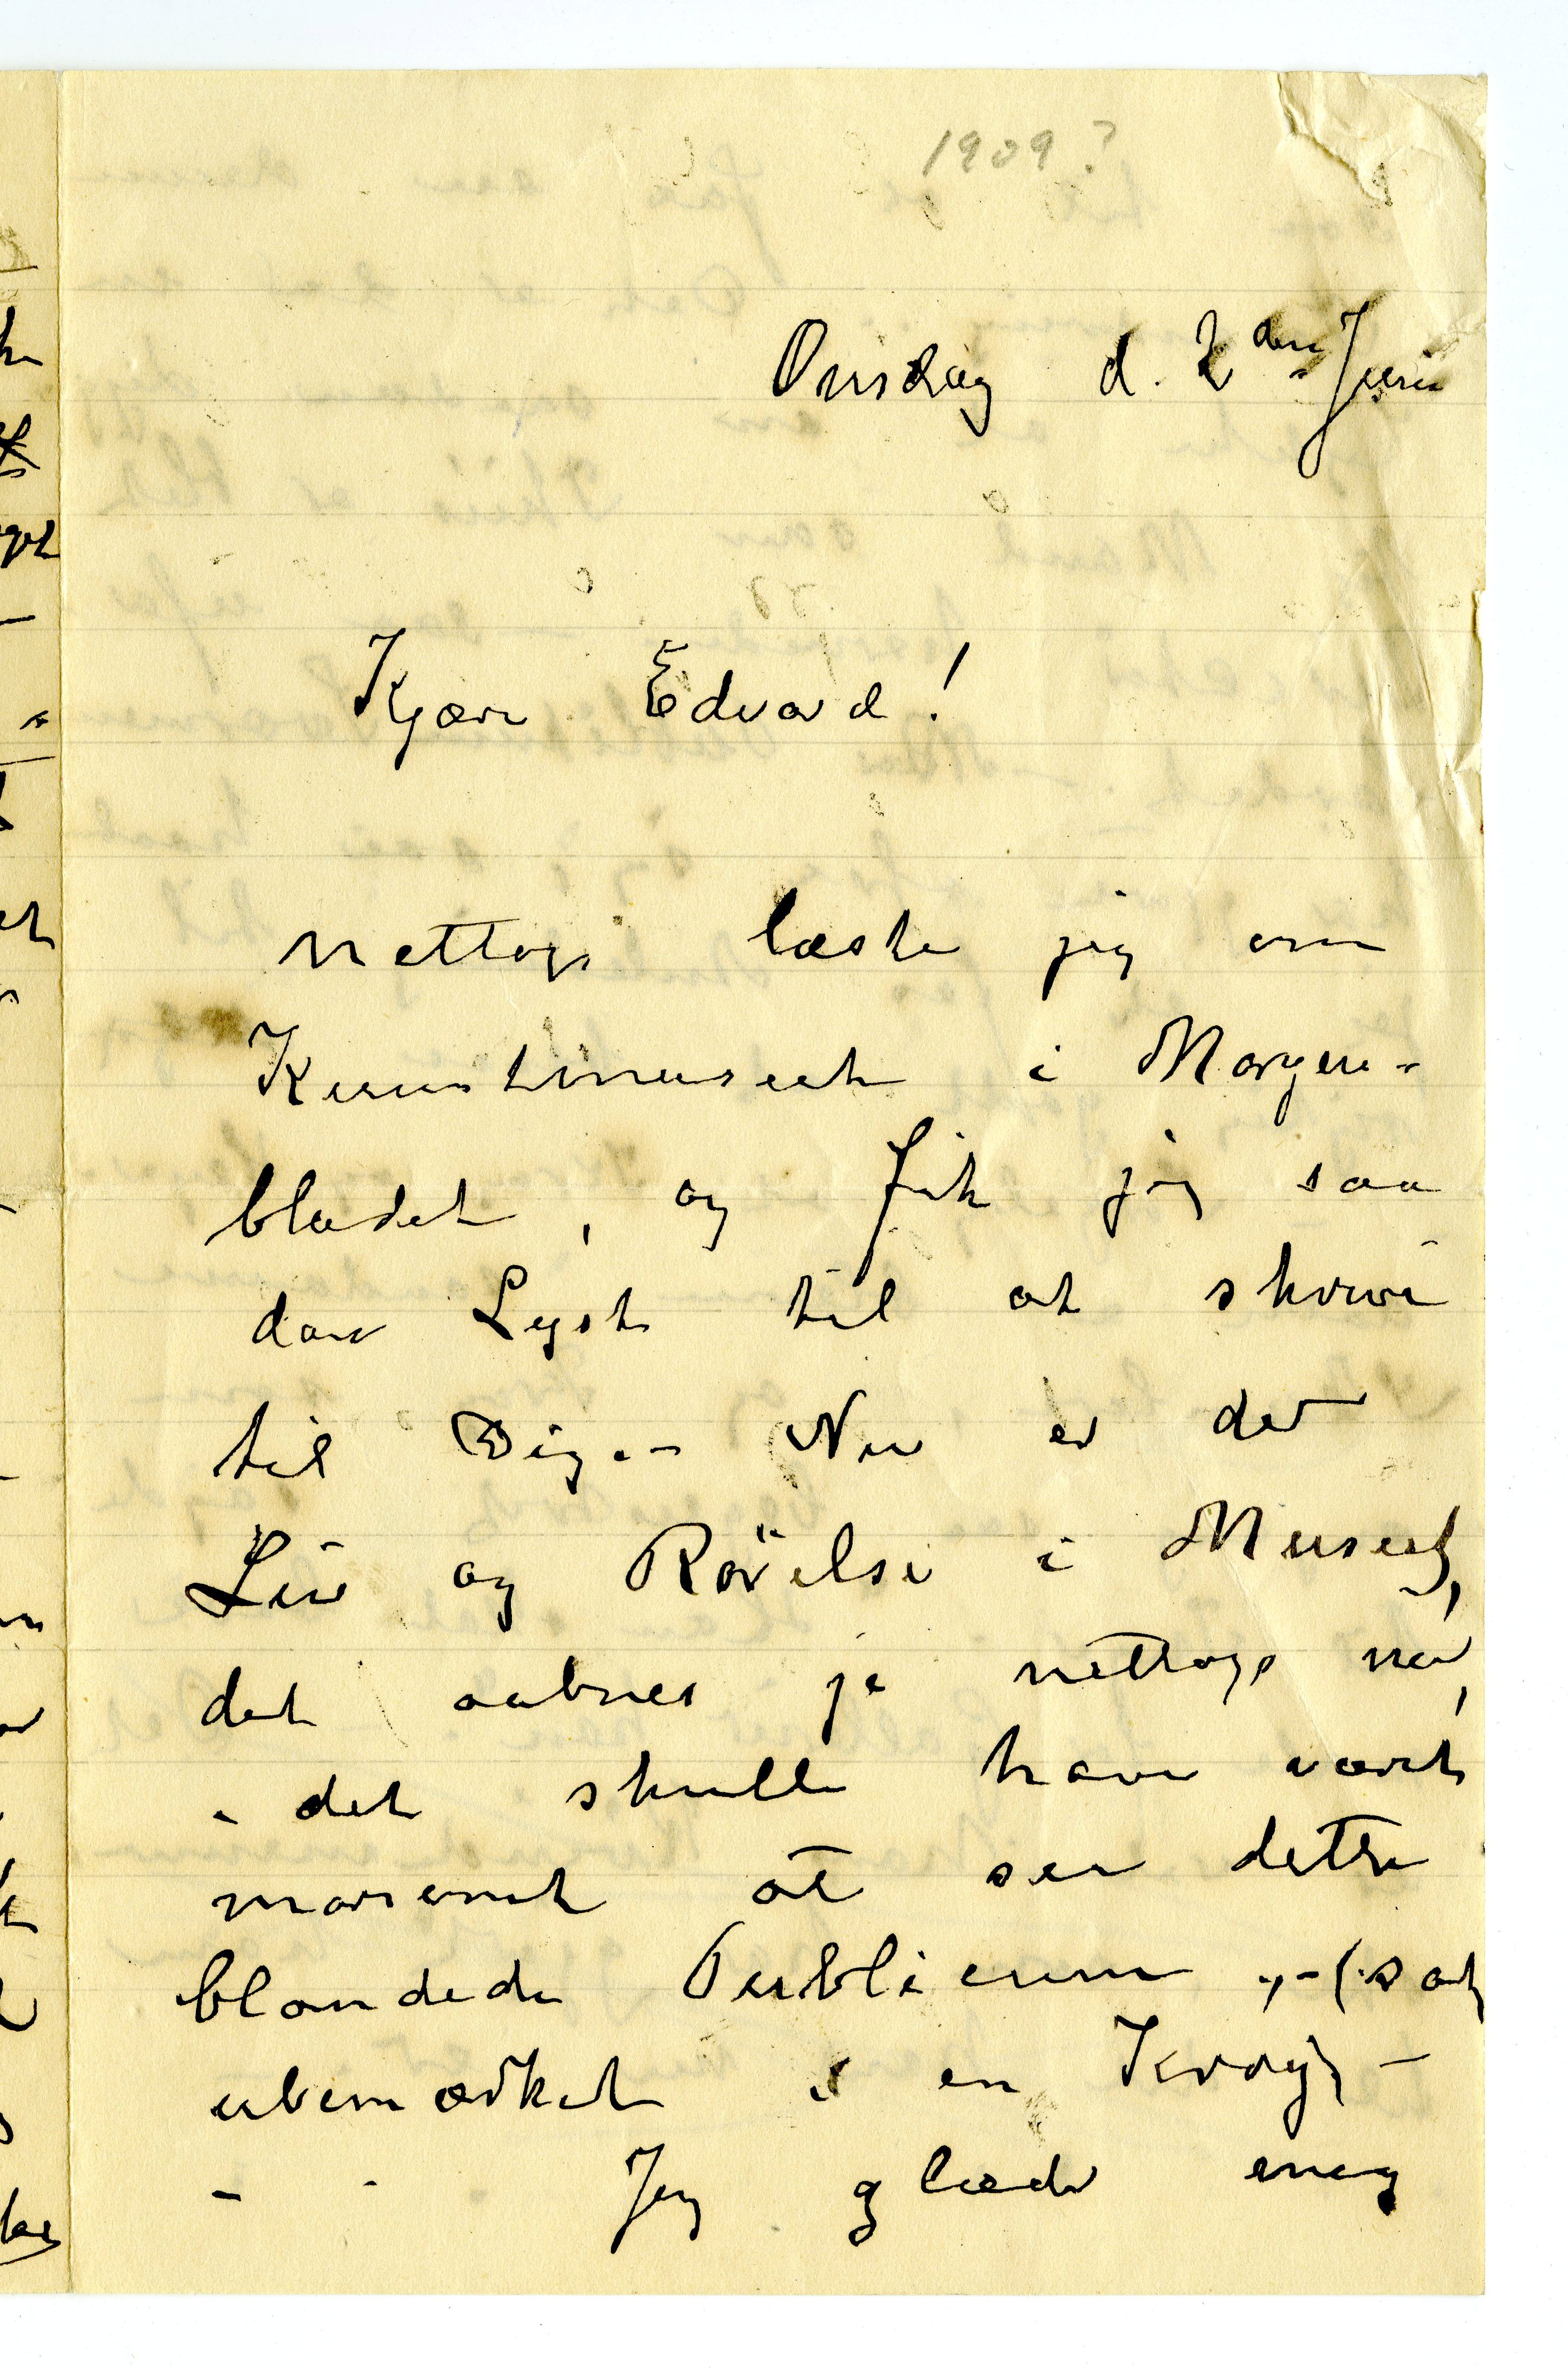 1909?
Onsdag d. 2den Juni
Kjære Edvard!
nettop læste jeg om
Kunstmuseet i Morgen-
bladet, og fik jeg saa
dan Lyst til at skrive
til Dig. - Nu er det
Liv og Rörelse i Museet,
det aabnes jo nettop nu,
- det skulle have været
morsomt at see dette
blandede Publicum, - (sat
ubemærket i en Krog) -
- - Jeg glæder mig